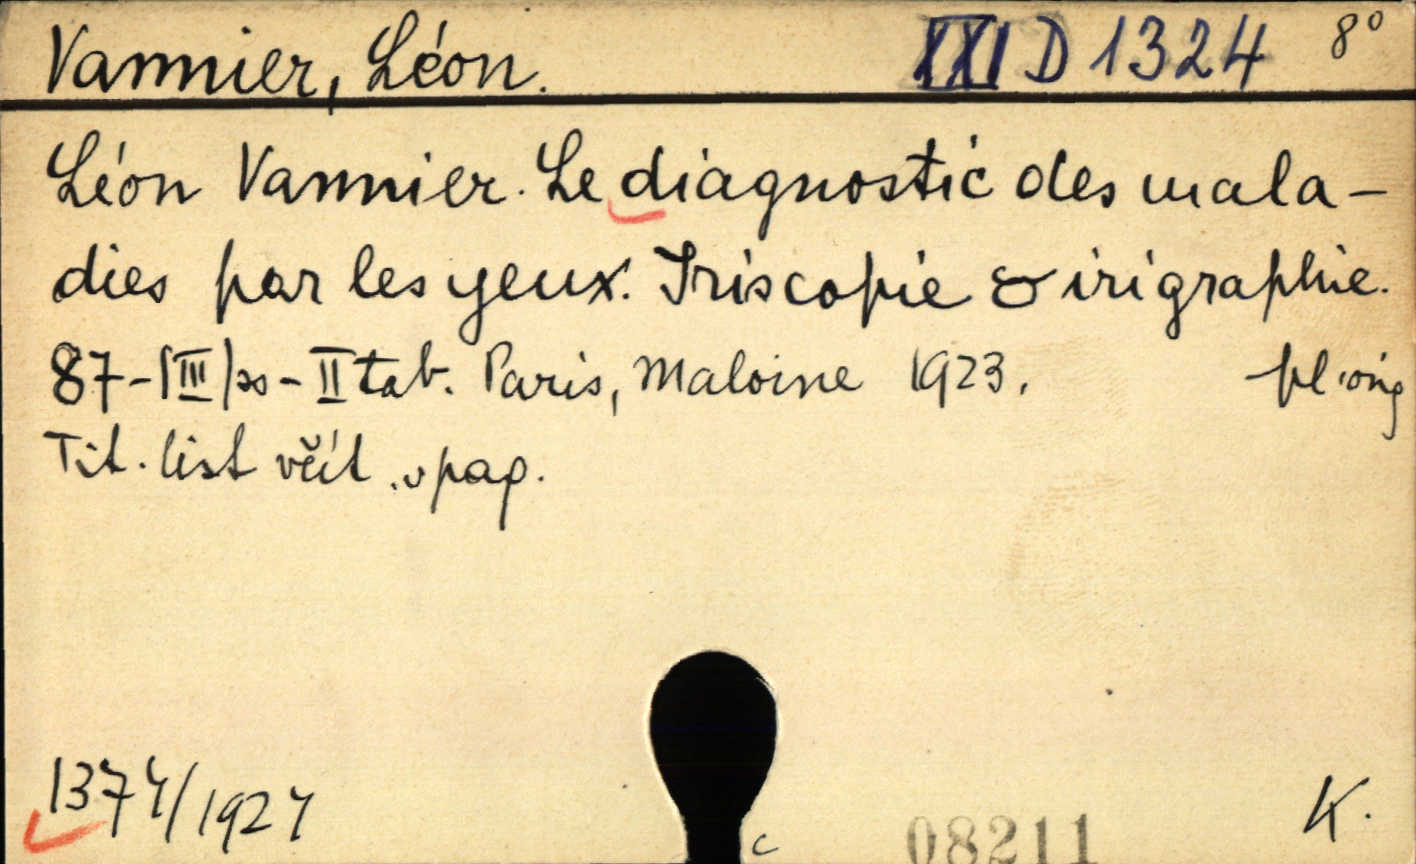 Vannier, Léon. XXI D 1324 8°
Léon Vannier. Le diagnostic des mala-
dies par les yeux. Iriscopie & irigraphie.
87-|III|20-II tab. Paris, Maloine 1923.
Tit. list včít. v pag.
1374/1927 K.
c 08211